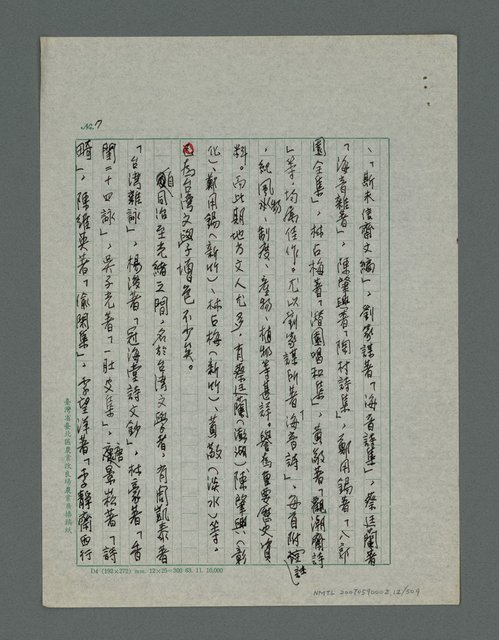 No. 7
、「斯未信齋文編」，劉家謀著「海音詩集」，蔡廷蘭著
「海音雜著」，陳肇興著「陶村詩集」，鄭用錫著「八郎
園全集」，林占梅著「潛園唱和集」，黃敬著「觀潮齋詩
」等，均為佳作。尤以劉家謀所著「海音詩」，每首附註
，紀風物、制度、產物、植物等甚詳。譽為重要歷史資
料。而此期地方文人尤多，有蔡廷蘭（澎湖）陳肇興（彰
化）、鄭用錫（新竹）、林占梅（新竹）、黃敬（淡水）等。
在台灣文學增色不少矣。
自同治至光緒之間，名於台灣文學者，有周凱泰著
「台灣雜詠」，楊浚著「冠海堂詩文鈔」，林豪著「香
閨二十四詠」，吳子光著「一肚皮集」，唐景崧著「詩
畸」，陳維英著「偷閑集」，李望洋著「李靜齋西行
臺灣省臺北區農業改良場農業推廣稿紙
D4 (192×272) mm. 12×25=300 63. 11. 10,000
NMTL 20090590002 12/509